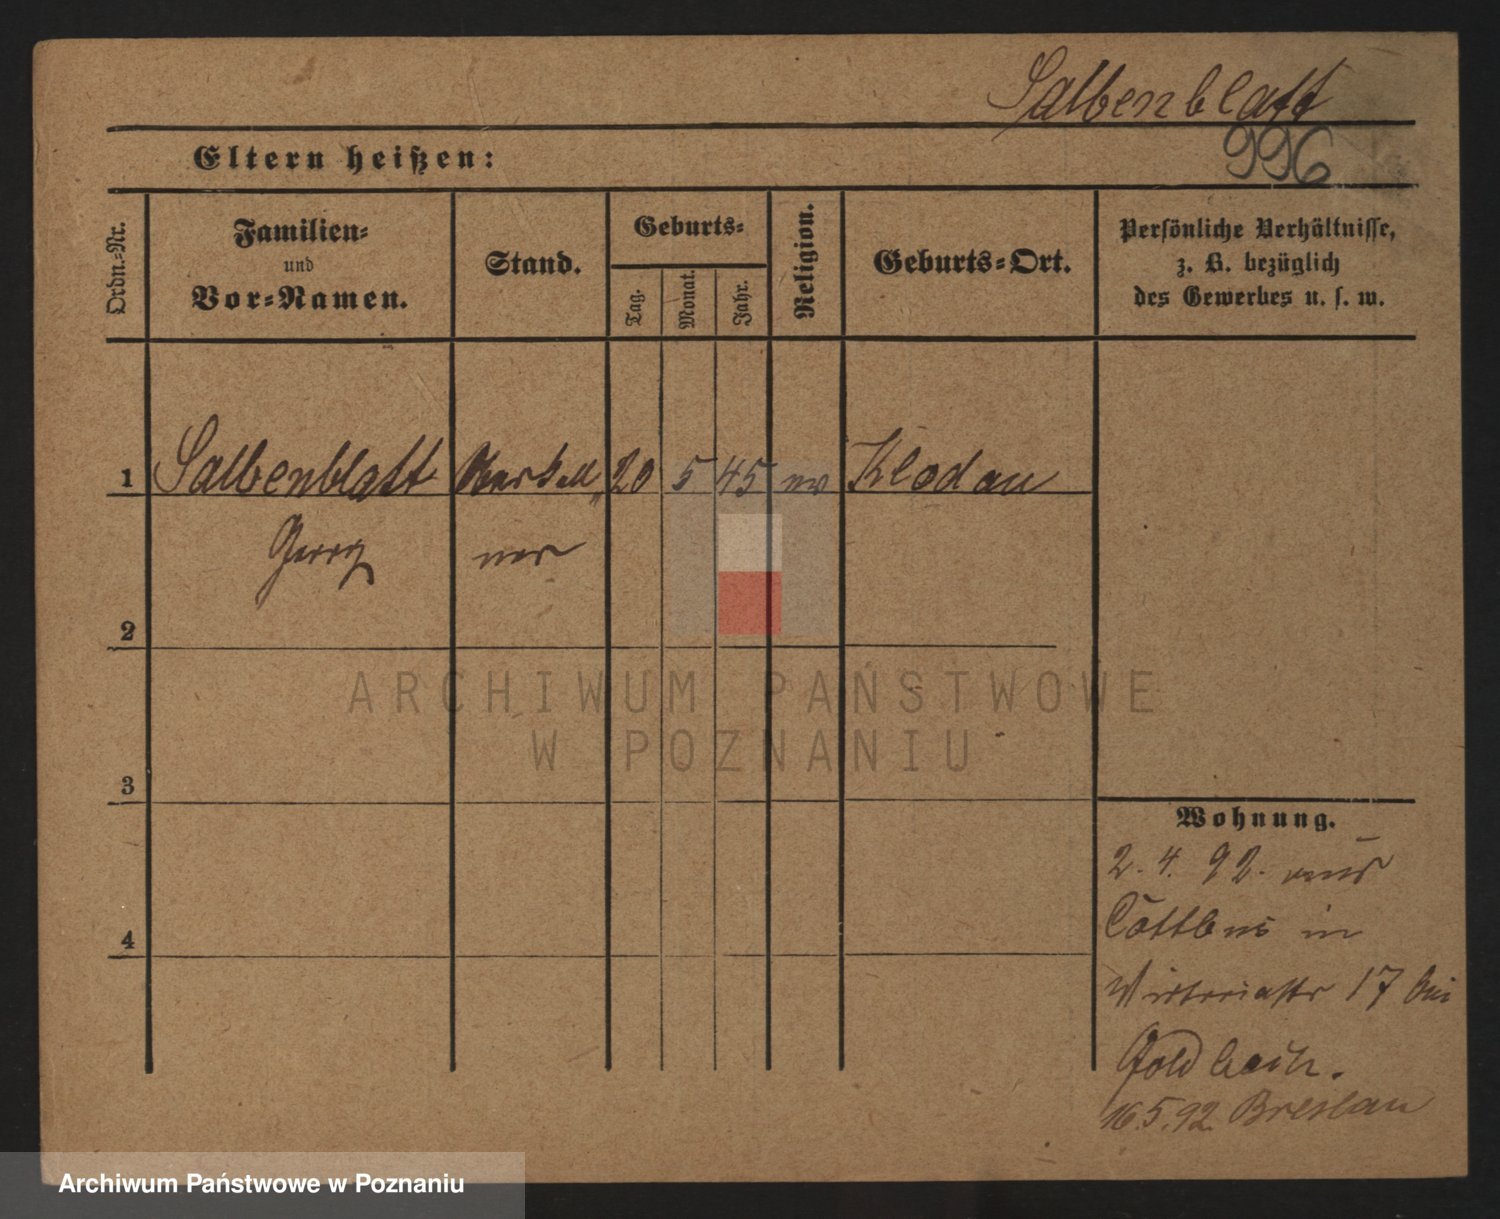 Salbenblatt
996
Eltern heißen:
Ordn.-Nr.
Familien-
und
Vor-Namen.
Stand.
Geburts-
Tag.
Monat.
Jahr.
Religion.
Geburts-Ort.
Persönliche Verhältnisse,
z. B. bezüglich
des Gewerbes u. s. w.
1 Salbenblatt Oberkell 20 5 45 ev Klodau
Georg ner
2
3
4
Wohnung.
2. 4. 92. aus
Cottbus in
Victoriastr 17 bei
Goldbach.
16.5.92. Breslau
ARCHIWUM PAŃSTWOWE
W POZNANIU
Archiwum Państwowe w Poznaniu